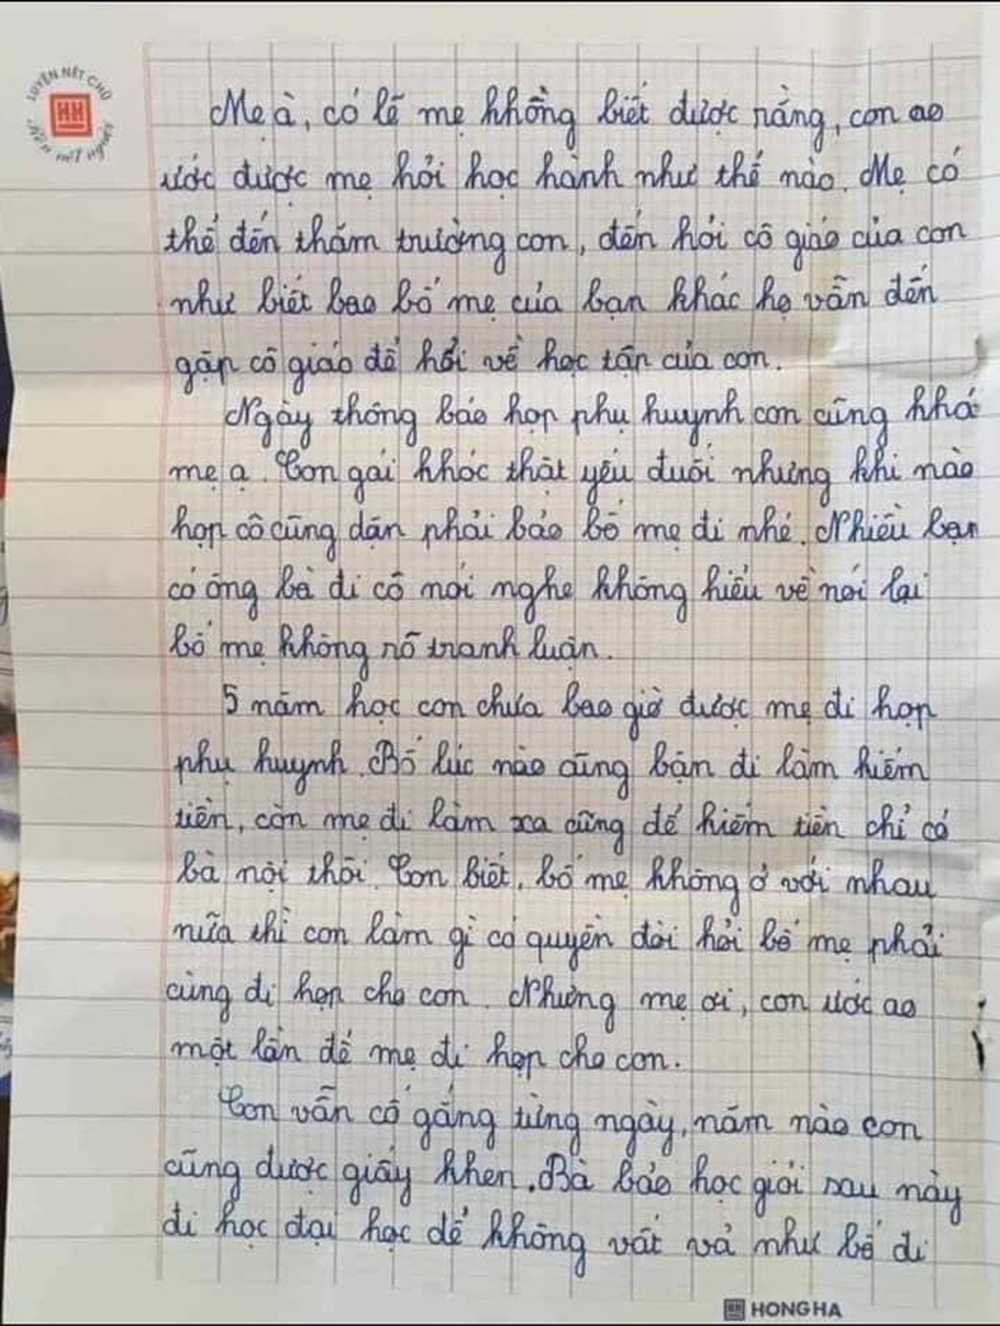 LUYỆN NÉT CHỮ
Rèn nết người
Mẹ à, có lẽ mẹ không biết được rằng, con ao
ước được mẹ hỏi học hành như thế nào. Mẹ có
thể đến thăm trường con, đến hỏi cô giáo của con
như biết bao bố mẹ của bạn khác họ vẫn đến
gặp cô giáo để hỏi về học tập của con.
Ngày thông báo họp phụ huynh con cũng khó
mẹ ạ. Con gái khóc thật yếu đuối nhưng khi nào
họp cô cũng dặn phải bảo bố mẹ đi nhé. Nhiều bạn
có ông bà đi cô nói nghe không hiểu về nói lại
bố mẹ không rõ tranh luận.
5 năm học con chưa bao giờ được mẹ đi họp
phụ huynh. Bố lúc nào cũng bận đi làm kiếm
tiền, còn mẹ đi làm xa cũng để kiếm tiền chỉ có
bà nội thôi. Con biết, bố mẹ không ở với nhau
nữa thì con làm gì có quyền đòi hỏi bố mẹ phải
cùng đi họp cho con. Nhưng mẹ ơi, con ước ao
một lần để mẹ đi họp cho con.
Con vẫn cố gắng từng ngày, năm nào con
cũng được giấy khen. Bà bảo học giỏi sau này
đi học đại học để không vất vả như bố đi
HONG HA